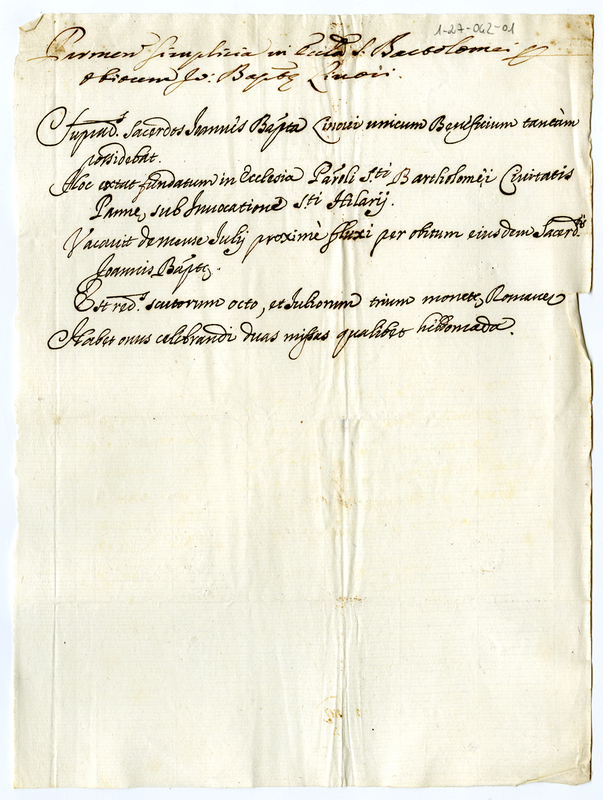 1-27-062-01
Parmen simplicia in Eccla S. Bartolomei
obitum Jo: Baptę
Suprad.s Sacerdos Joannis Bapta unicum Beneficium tantùm
possidebat.
Hoc extat fundatum in Ecclesia Paroli S.ti Bartholomęi Civitatis
Parmę, sub Invocatione S.ti Hilarij.
Vacavit de mense Julij proximè fluxi per obitum eiusdem Sacerd.tis
Joannis Baptę.
Est red.s scutorum octo, et Juliorum trium monetę Romanę
Habet onus celebrandi duas missas qualibet hebdomada.